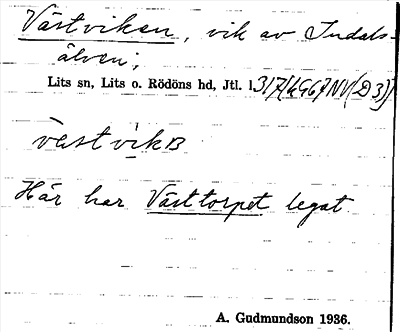 Västviken, vik av Indals-
älven;
Lits sn, Lits o. Rödöns hd, Jtl.
västvikB
Här har Västtorpet legat
A. Gudmundson 1936.